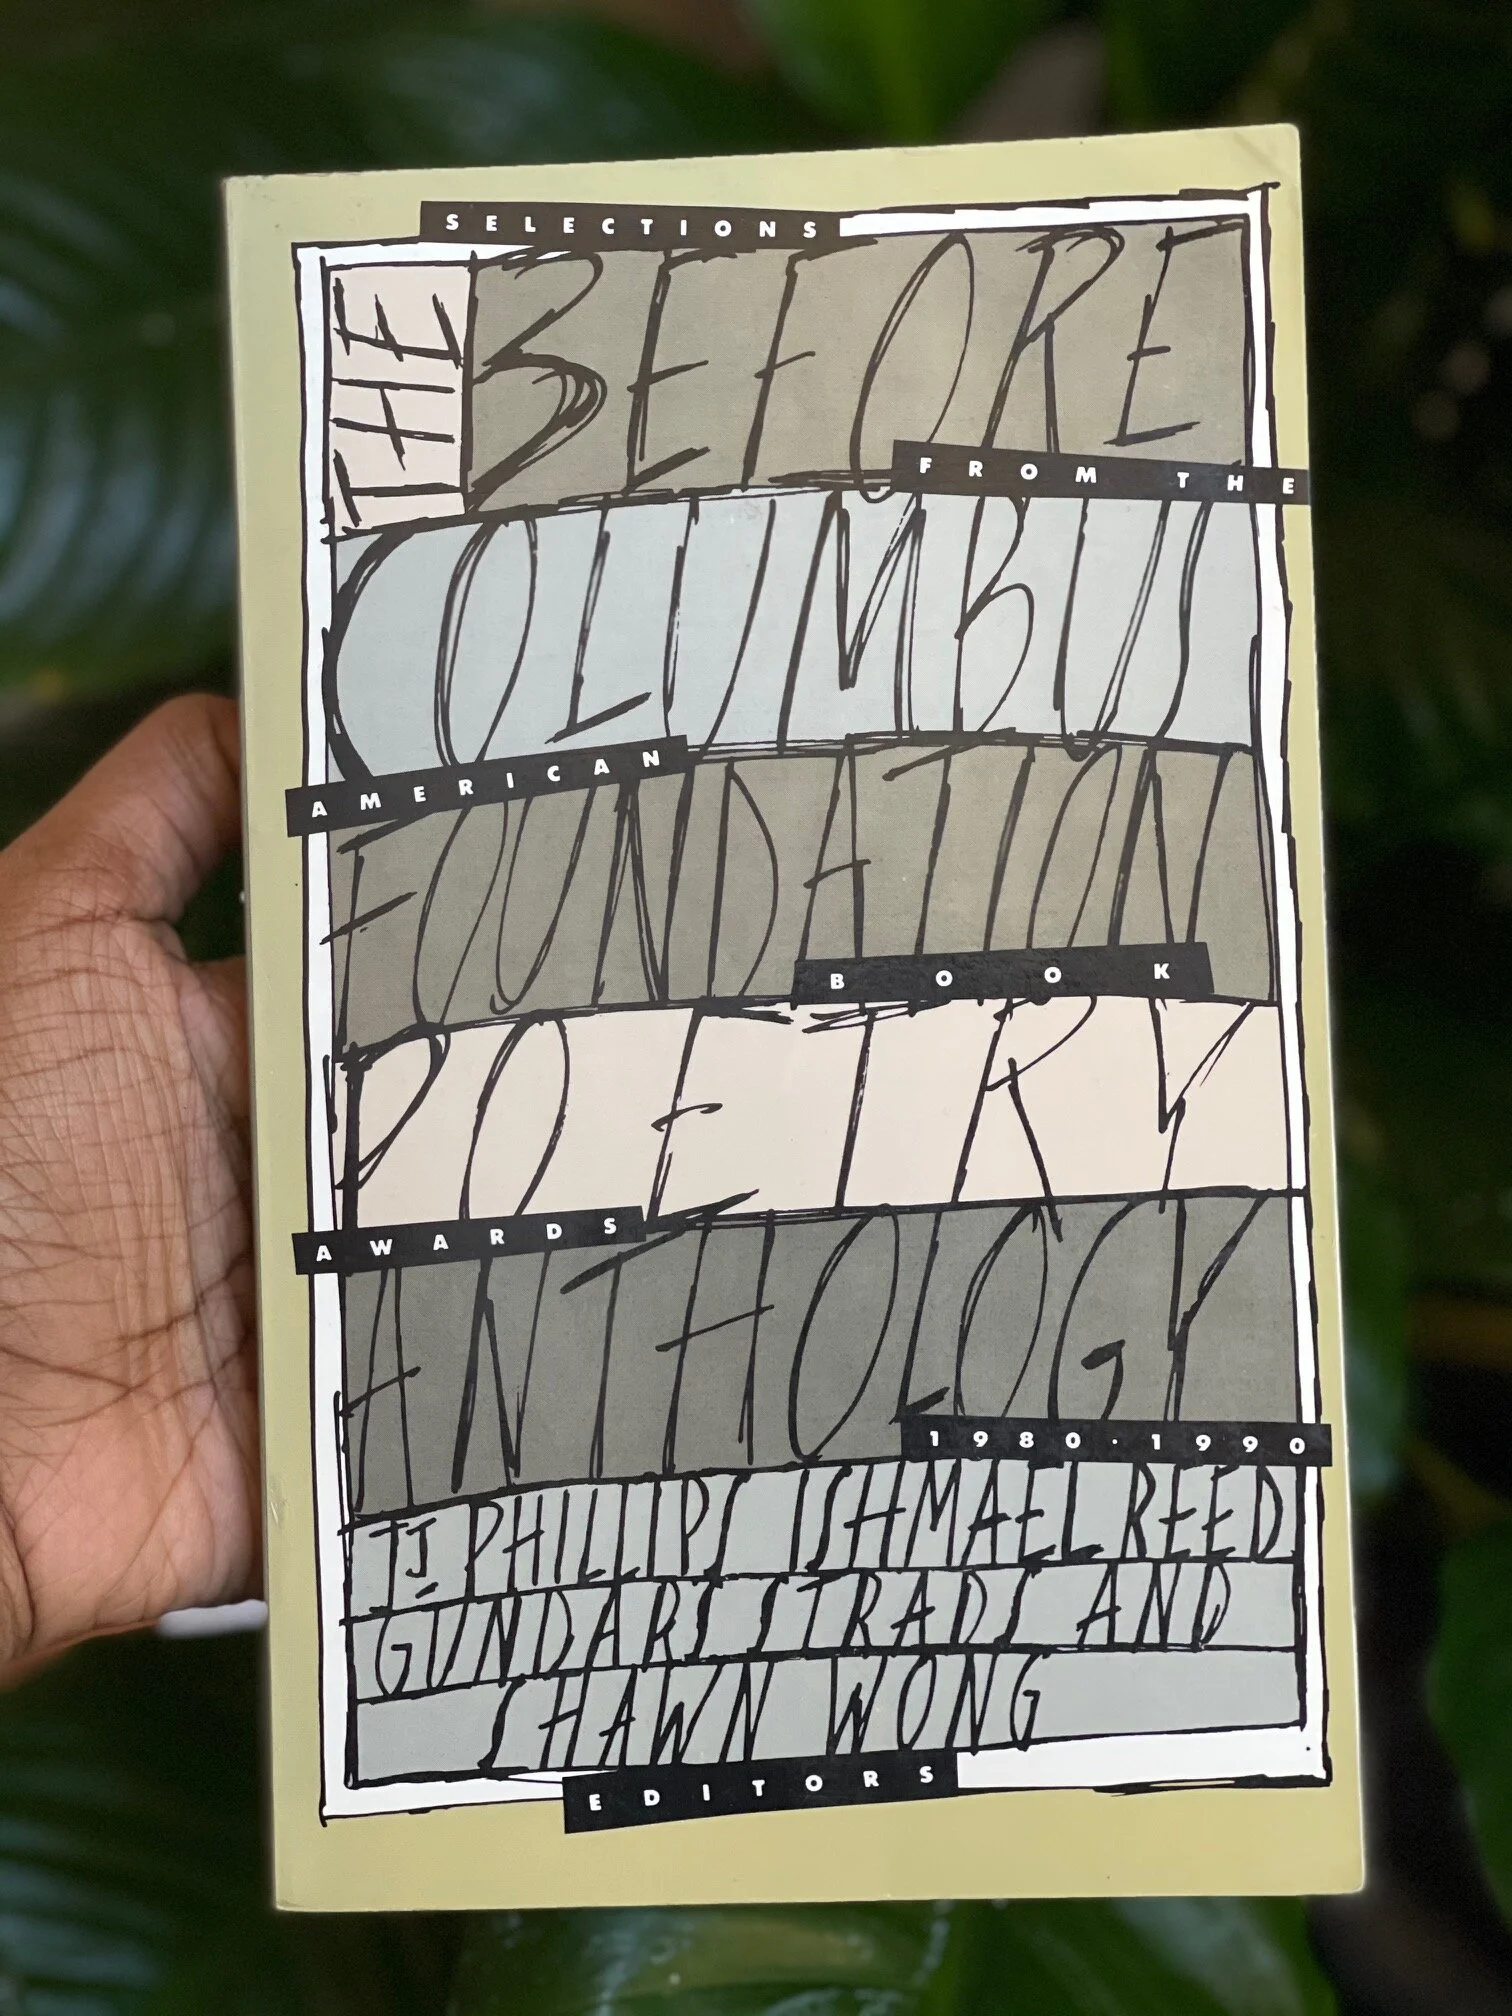 SELECTIONS
THE BEFORE
FROM THE
COLUMBUS
AMERICAN
FOUNDATION
BOOK
POETRY
AWARDS
ANTHOLOGY
1980·1990
JJ PHILLIPS ISHMAEL REED
GUNDARS STRADS AND
SHAWN WONG
EDITORS